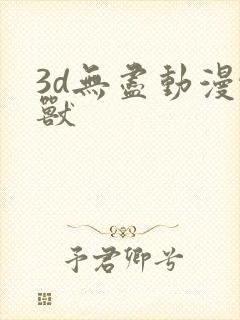 3d無盡動漫
獸
予君卿兮